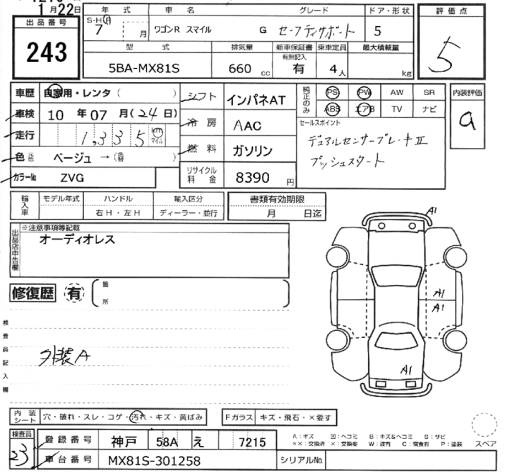 月22日
出品番号
243
年式
S・H・R
7 月
車名
ワゴンR スマイル
グレード
G セーフティサポート
ドア・形状
5
評価点
5
型式
5BA-MX81S
排気量
660 cc
新車保証書
有無記入
有
乗車定員
4人
最大積載量
kg
車歴 自家用・レンタ( )
車検 10年07月(24日)
走行 1,335 km
色 ベージュ→( )
カラーNo ZVG
シフト インパネAT
冷房 AAC
燃料 ガソリン
リサイクル料金 8390円
純正のみ
PS PW AW SR
ABS エアB TV ナビ
セールスポイント
デュアルセンサーブレーキⅡ
プッシュスタート
内装評価
a
輸入車
モデル年式 ハンドル 輸入区分
年 右H・左H ディーラー・並行
書類有効期限
月 日迄
出品店申告欄
※注意事項等記載
オーディオレス
修復歴 有
箇所
検査員記入欄
外装A
A1
A1
A1
A1
内装シート 穴・破れ・スレ・コゲ・汚れ・キズ・黄ばみ
Fガラス キズ・飛石・×要す
検査員
23
登録番号 神戸 58A え 7215
車台番号 MX81S-301258
シリアルNo.
A:キズ U:ヘコミ B:キズ&ヘコミ S:サビ
スペア